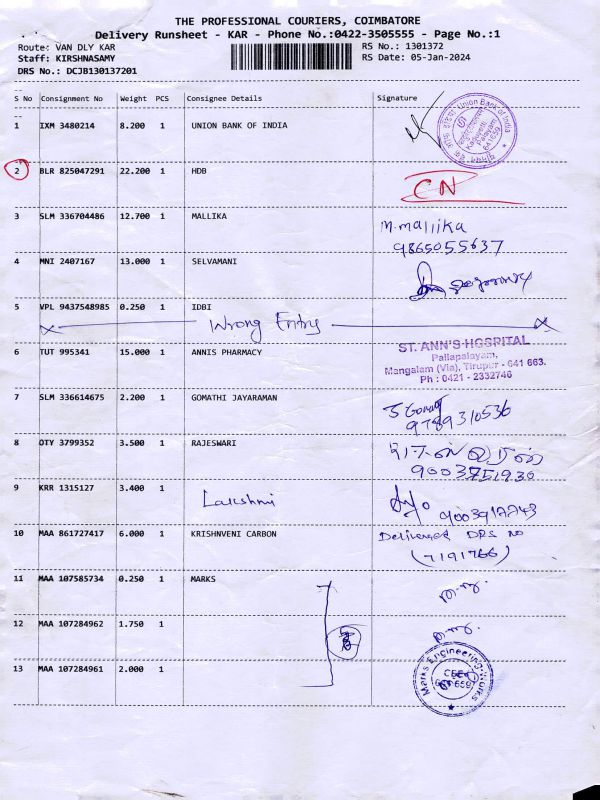 THE PROFESSIONAL COURIERS, COIMBATORE
Delivery Runsheet - KAR - Phone No.:0422-3505555 - Page No.:1
Route: VAN DLY KAR
RS No.: 1301372
Staff: KIRSHNASAMY
RS Date: 05-Jan-2024
DRS No.: DCJB130137201
S No Consignment No Weight PCS Consignee Details Signature
1 IXM 3480214 8.200 1 UNION BANK OF INDIA
Union Bank of India
641659
2 BLR 825047291 22.200 1 HDB CN
3 SLM 336704486 12.700 1 MALLIKA M.mallika
9865055637
4 MNI 2407167 13.000 1 SELVAMANI
5 VPL 9437548985 0.250 1 IDBI
Wrong Entry
6 TUT 995341 15.000 1 ANNIS PHARMACY
ST. ANN'S HOSPITAL
Pallapalayam,
Mangalam (Via), Tirupur - 641 663.
Ph : 0421 - 2332746
7 SLM 336614675 2.200 1 GOMATHI JAYARAMAN
9789310536
8 OTY 3799352 3.500 1 RAJESWARI
9003751930
9 KRR 1315127 3.400 1 Lakshmi
10 MAA 861727417 6.000 1 KRISHNVENI CARBON Delivered DRS no
(7191766)
11 MAA 107585734 0.250 1 MARKS
12 MAA 107284962 1.750 1
13 MAA 107284961 2.000 1
Marks Engineering Works